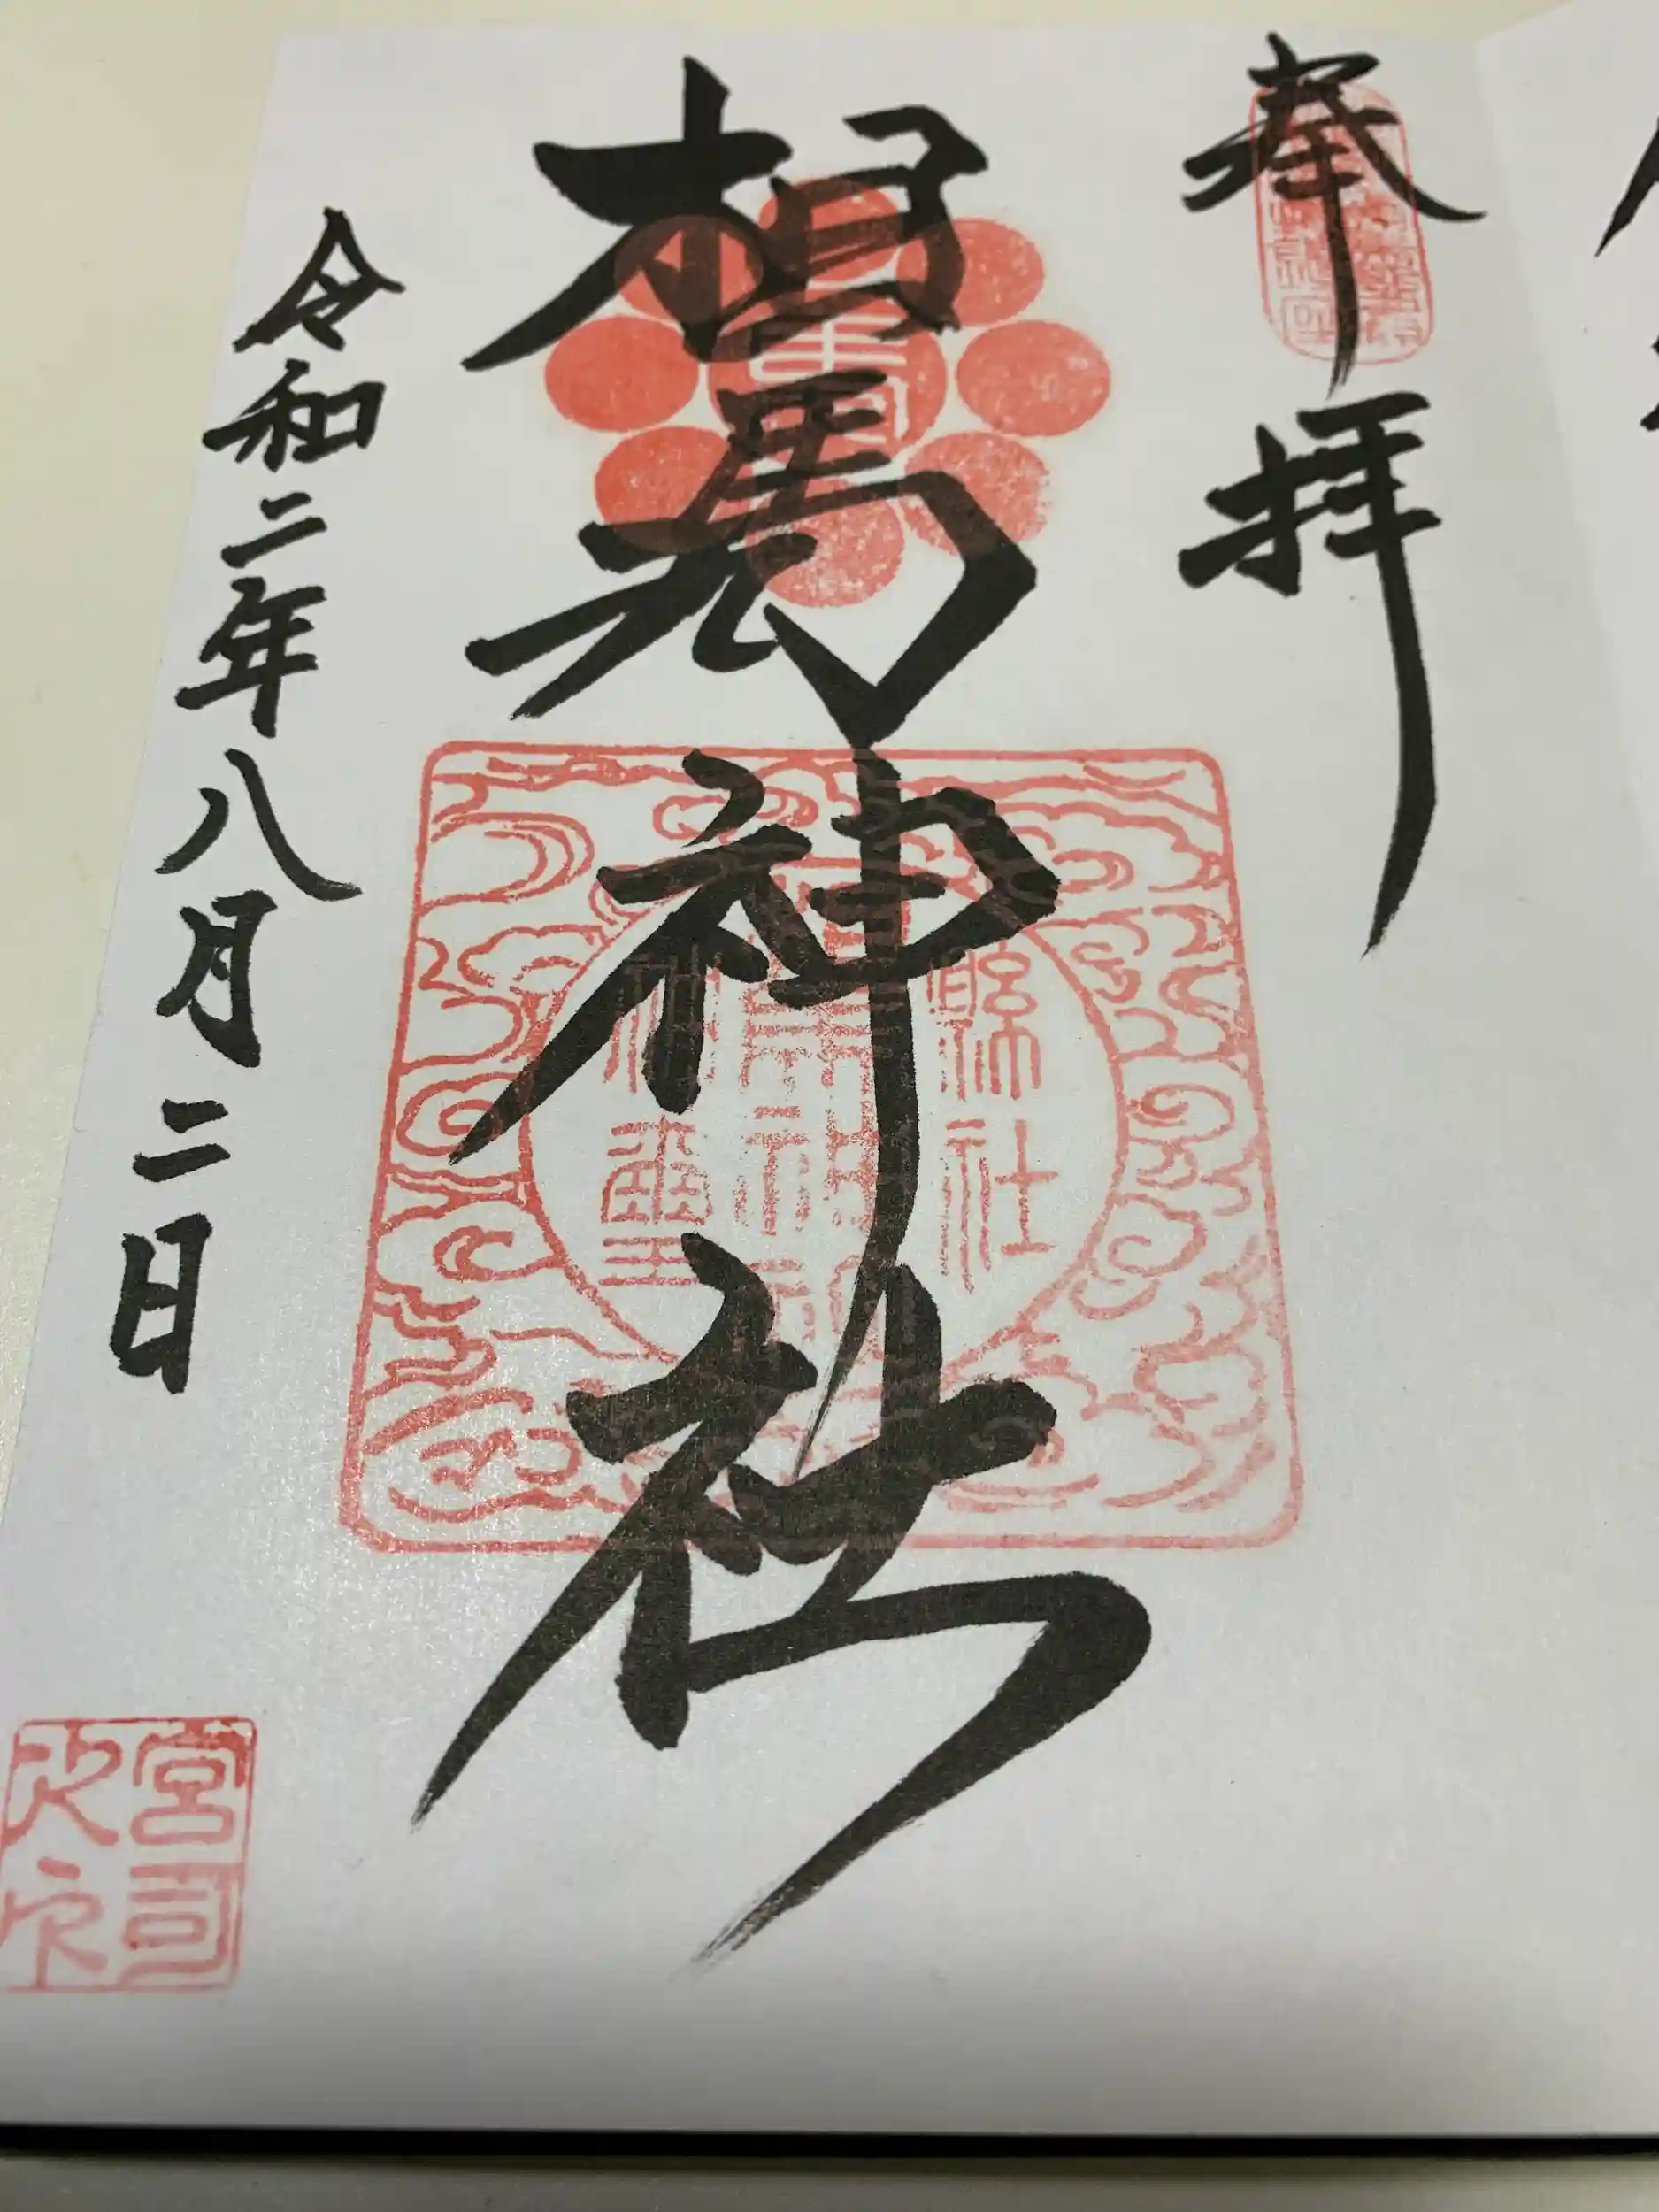 奉拝
相馬神社
縣社
神璽
令和二年八月二日
宮司之印